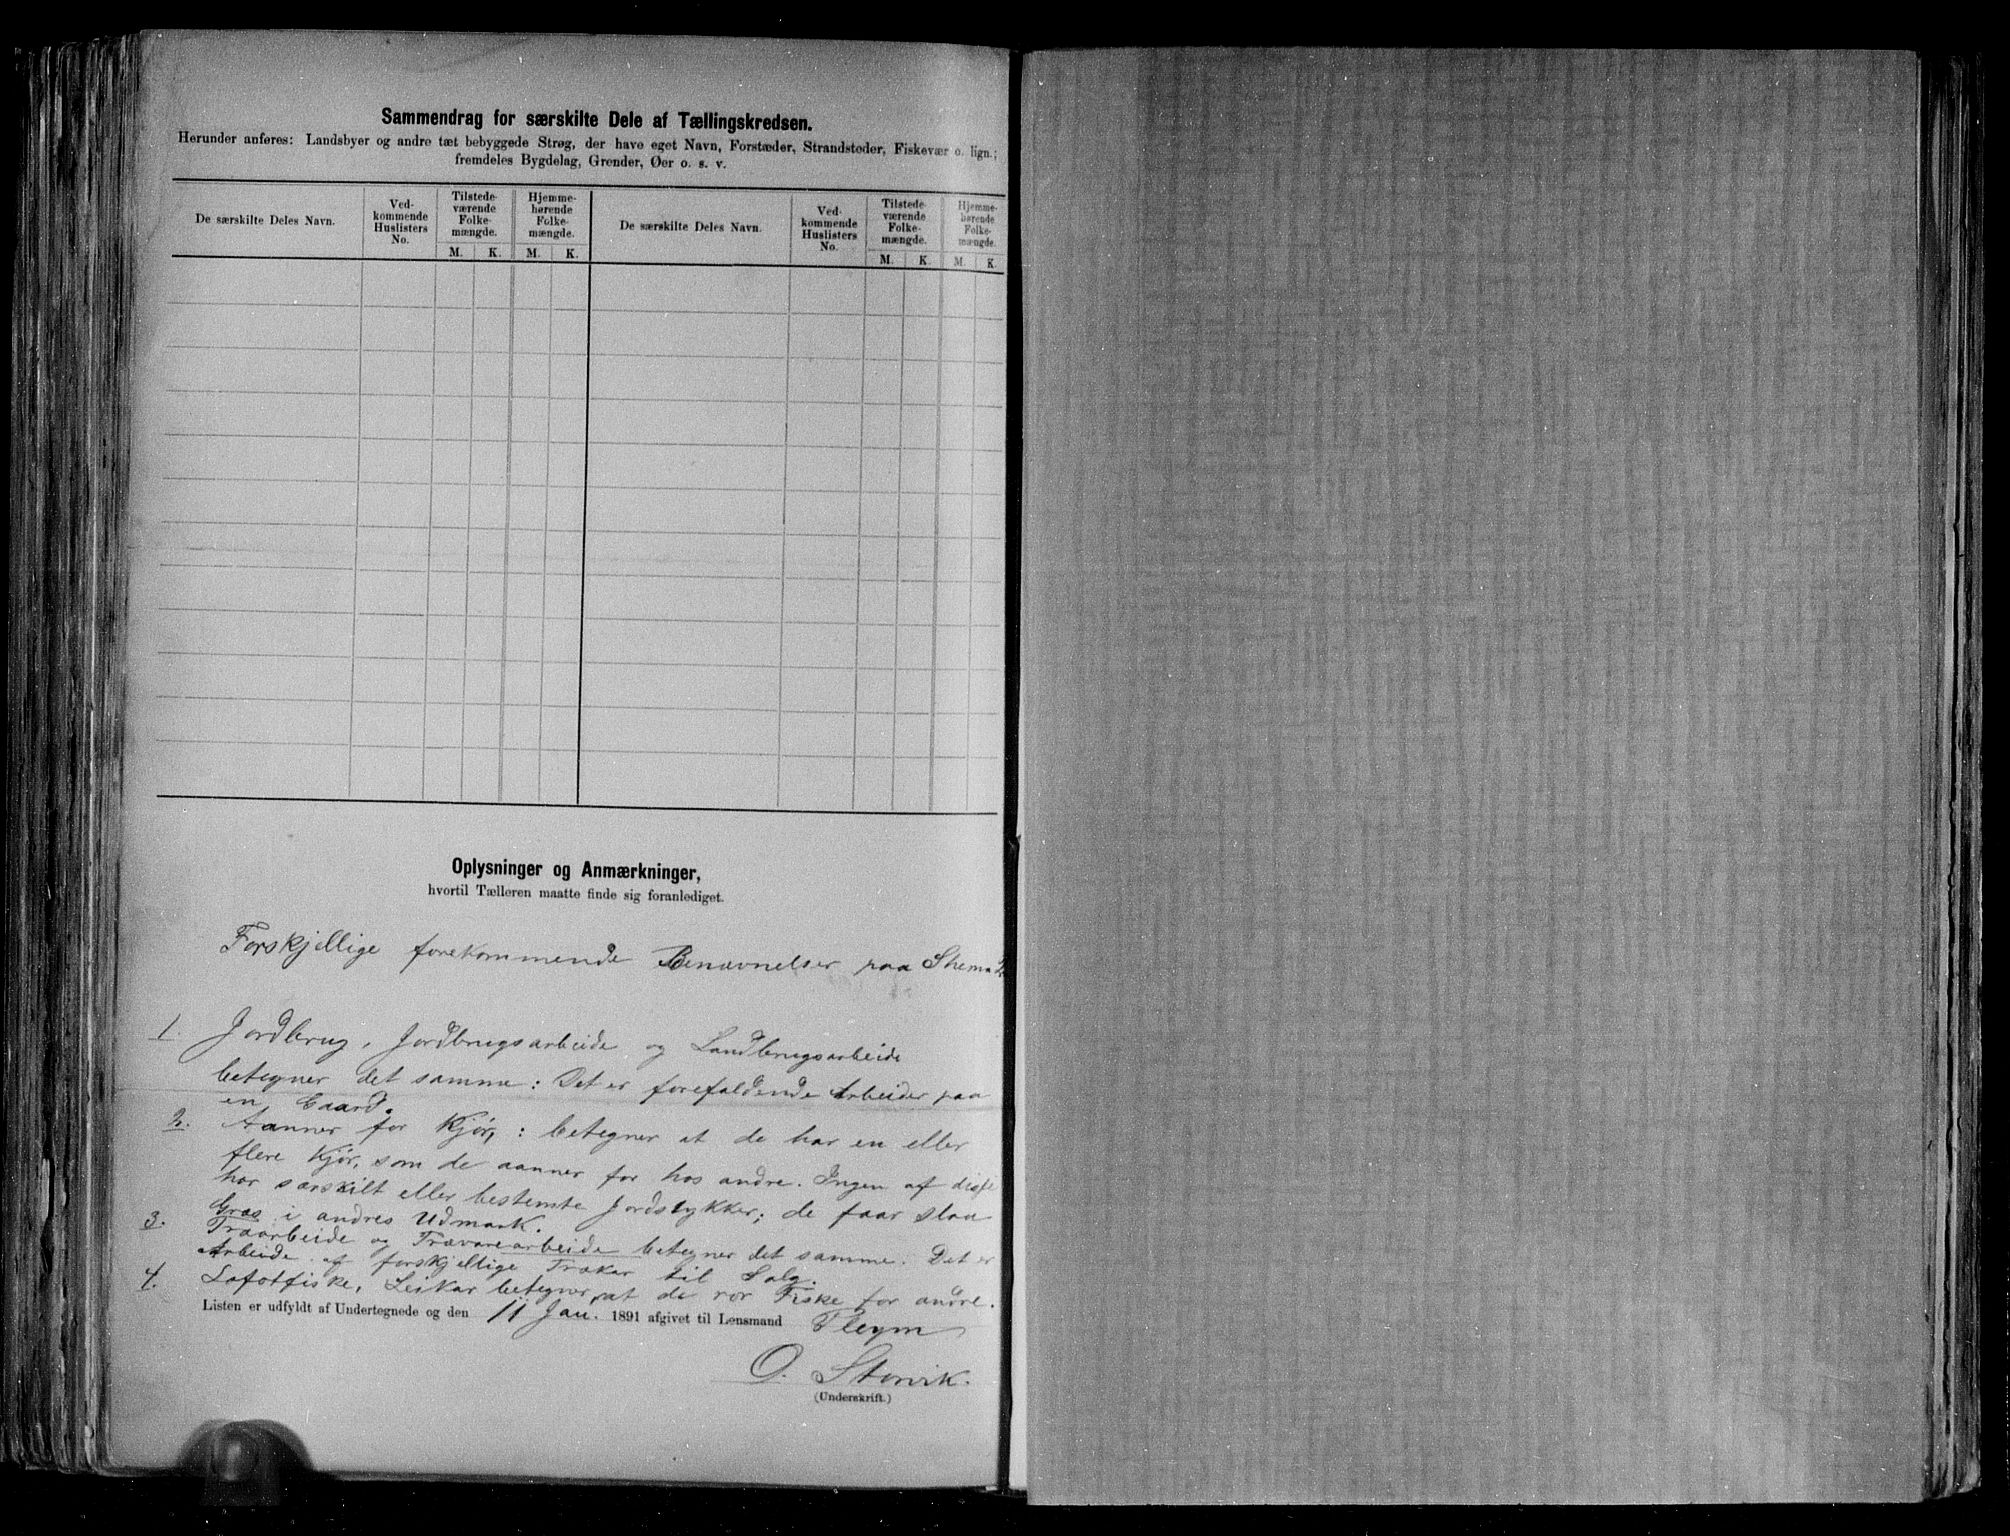 Sammendrag for særskilte Dele af Tællingskredsen.
Herunder anføres: Landsbyer og andre tæt bebyggede Strøg, der have eget Navn, Forstæder, Strandsteder, Fiskevær o. lign.;
fremdeles Bygdelag, Grender, Øer o. s. v.
De særskilte Deles Navn.
Ved-
kommende
Huslisters
No.
Tilstede-
værende
Folke-
mængde.
M. K.
Hjemme-
hørende
Folke-
mængde.
M. K.
De særskilte Deles Navn.
Ved-
kommende
Huslisters
No.
Tilstede-
værende
Folke-
mængde.
M. K.
Hjemme-
hørende
Folke-
mængde.
M. K.
Oplysninger og Anmærkninger,
hvortil Tælleren maatte finde sig foranlediget.
Forskjellige forekommende Benævnelser paa Skema 2
1. Jordbrug, Jordbrugsarbeide og Landbrugsarbeide
betegner det samme: Det er forefaldende Arbeider paa
en Gaard.
2. Aanner for Kjør,: betegner at de har en eller
flere Kjør, som de aanner for hos andre. Ingen af disse
har særskilt eller bestemte Jordstykker; de faar slaa
Græs i andres Udmark.
3. Træarbeide og Trævarearbeide betegner det samme. Det er
Arbeide af forskjellige Trækar til Salg.
4. Lofotfiske, betegner at de ror Fiske for andre.
Listen er udfyldt af Undertegnede og den 11 Jan. 1891 afgivet til Lensmand Pleym
O. Storvik.
(Underskrift.)